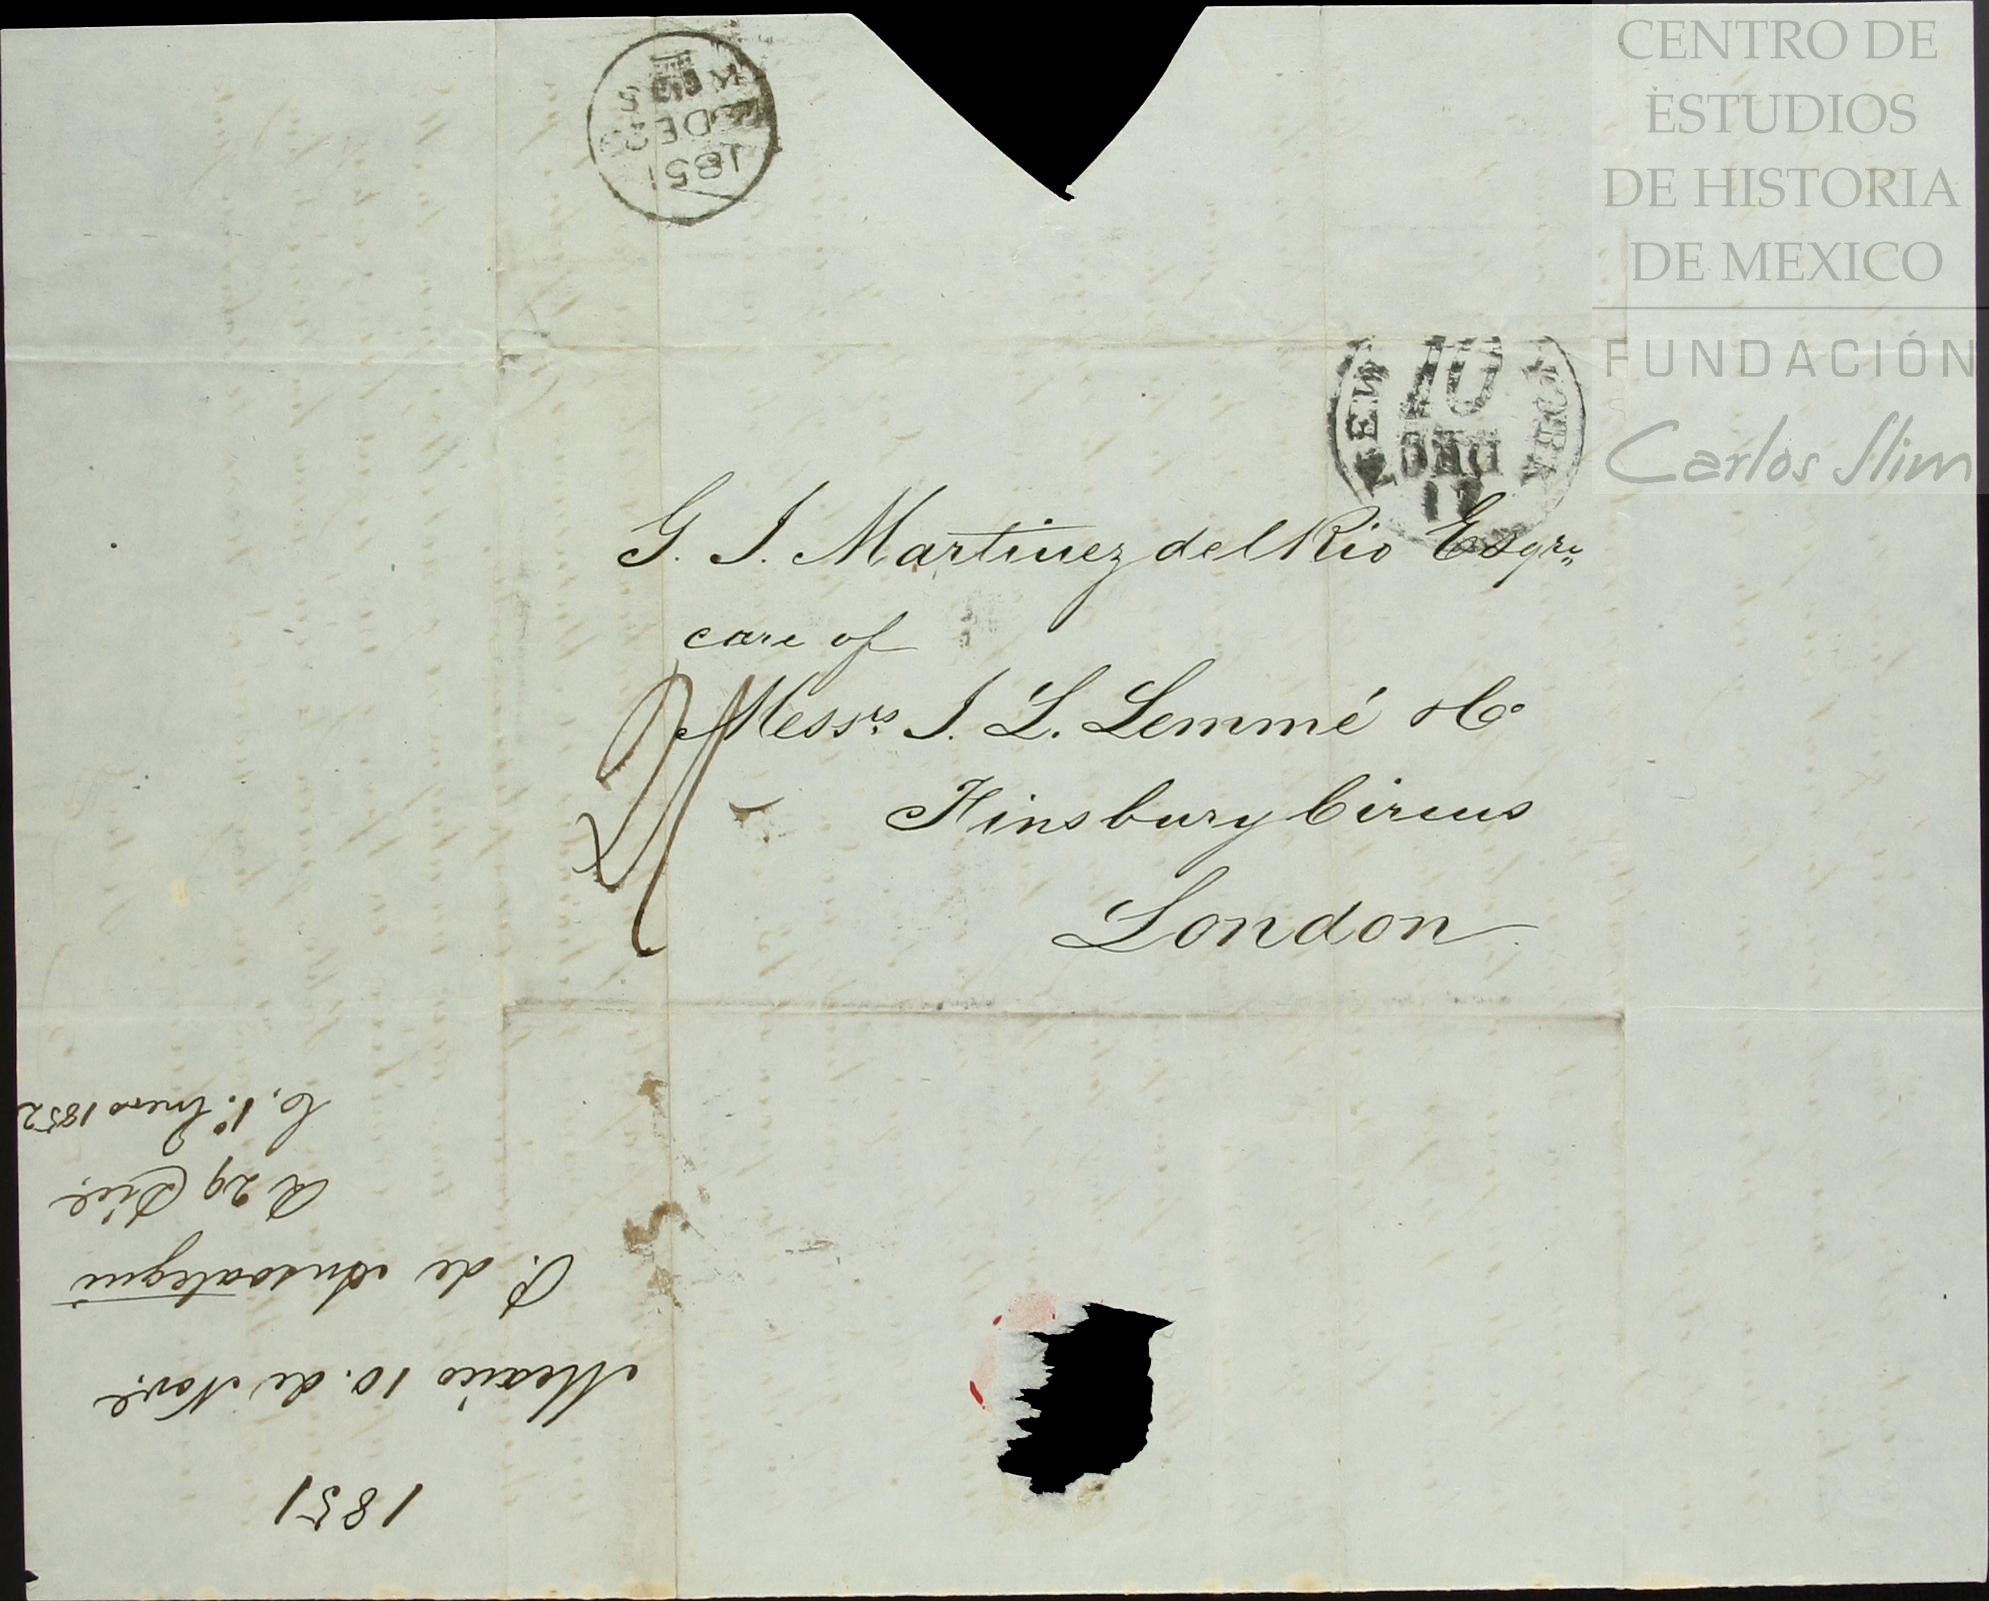 CENTRO DE
ESTUDIOS
DE HISTORIA
DE MEXICO
FUNDACIÓN
Carlos Slim
1851
DE 29
NEW YORK
10
DEC
17
G. J. Martinez del Rio Esqre
care of
Messrs J. L. Lemmé & Co
Finsbury Circus
London
1851
Mexico 10. de Nove
P. de Ansoategui
R 29 Dice
C. 1o. Enero 1852